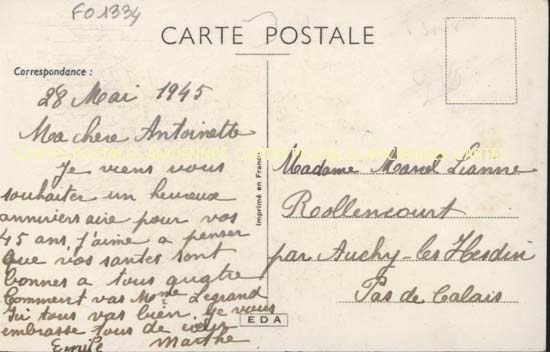 FO1334
CARTE POSTALE
Correspondance :
28 Mai 1945
Ma chere Antoinette
Je viens vous
souhaiter un heureux
anniversaire pour vos
45 ans, j'aime a penser
que vos santes sont
bonnes a tous quatre
Comment vas Mme Legrand
Ici tous vas bien. Je vous
embrasse tous de cœur
Emile Marthe
Imprimé en France
EDA
Madame Marcel Lianne
Rollencourt
par Auchy-les Hesdin
Pas de Calais